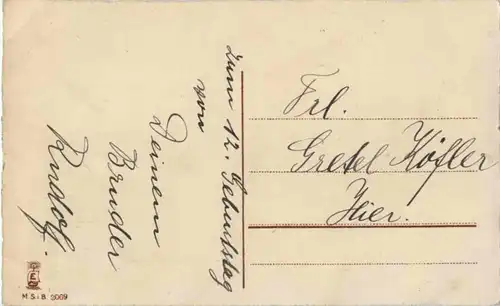 zum 12. Geburtstag
von
Deinem
Bruder
Rudolf.
Frl.
Gretel Höfler
Hier.
M.S.i.B. 2069